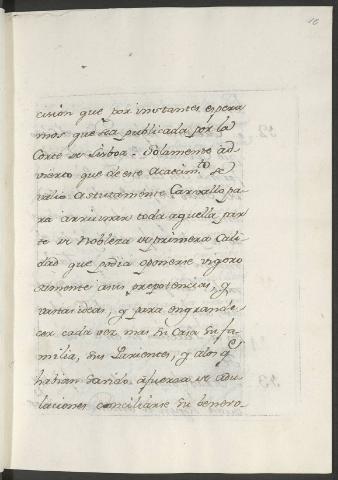 16
cision que por instantes espera
mos que sea publicada por la
Corte de Lisboa. Solamente ad
vierto que de este Acaecim.to se
valio astutamente Carvallo pa
ra arruinar toda aquella par
te de Nobleza de primera Cali
dad que podia oponerse vigoro
samente a sus prepotencias, y
vastas ideas, y para engrande
cer cada vez mas su Casa su fa
milia, sus Parientes, y a los q.e
habian savido a fuerza de adu
laciones conciliarse su benevo